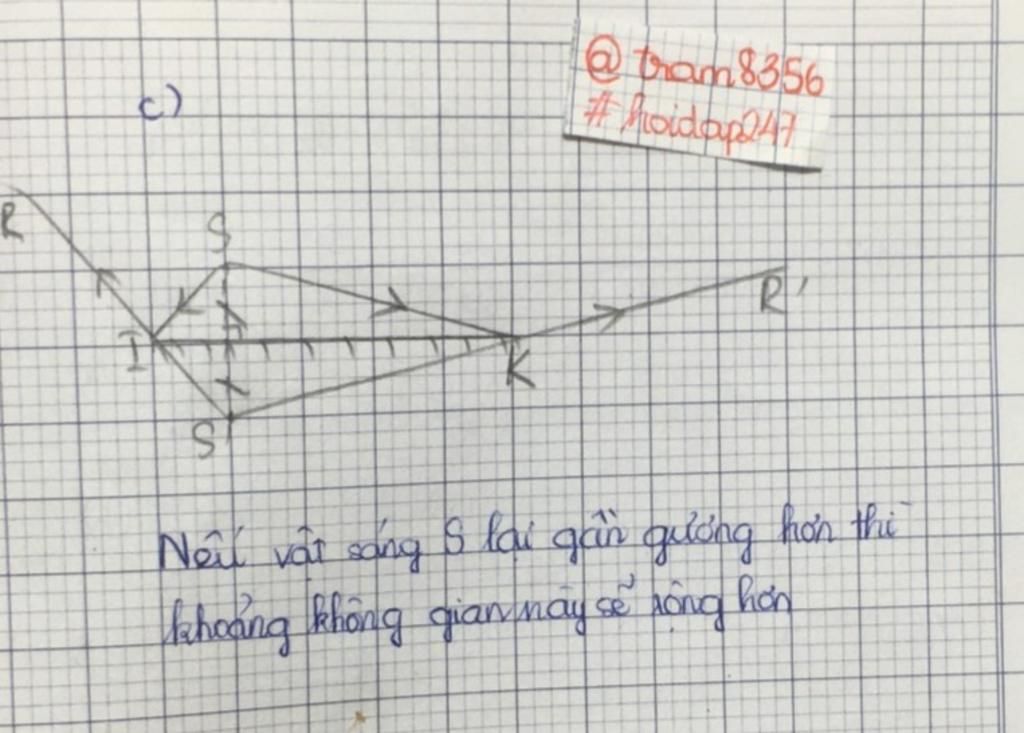 @ tram8356
# hoidap247
c)
R
S
I
K
R'
S'
Nếu vật sáng S lại gần gương hơn thì
khoảng không gian này sẽ rộng hơn